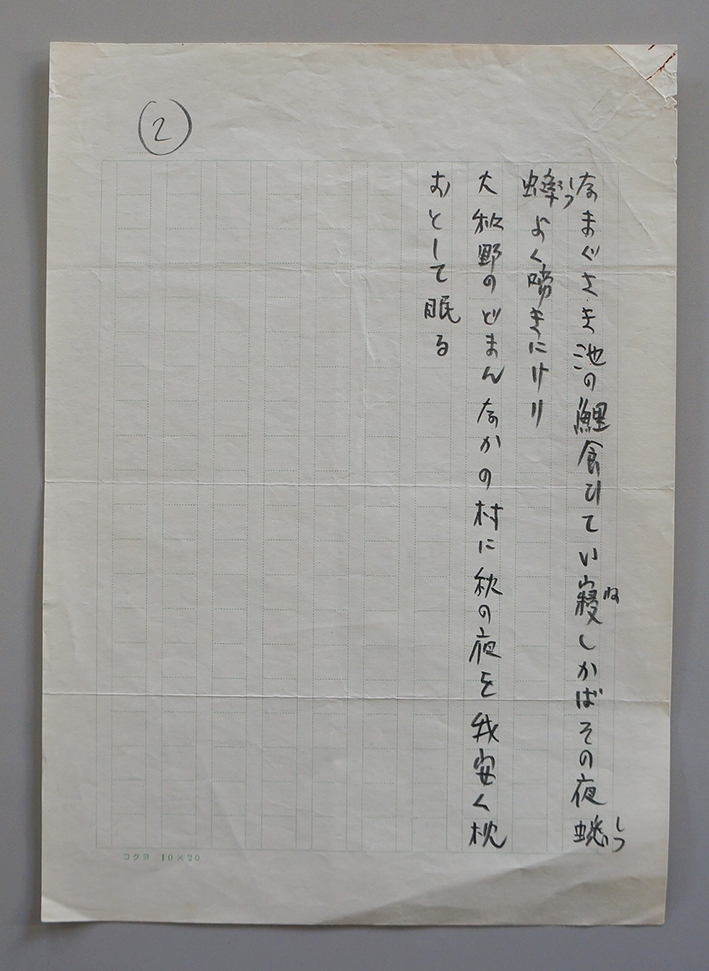 なまぐさき池の鯉食ひてい寝しかばその夜蟋
ね
しつ
蟀よく啼きにけり
大秋野のどまんなかの村に秋の夜を我安く枕
おとして眠る
2
コクヨ 10×20